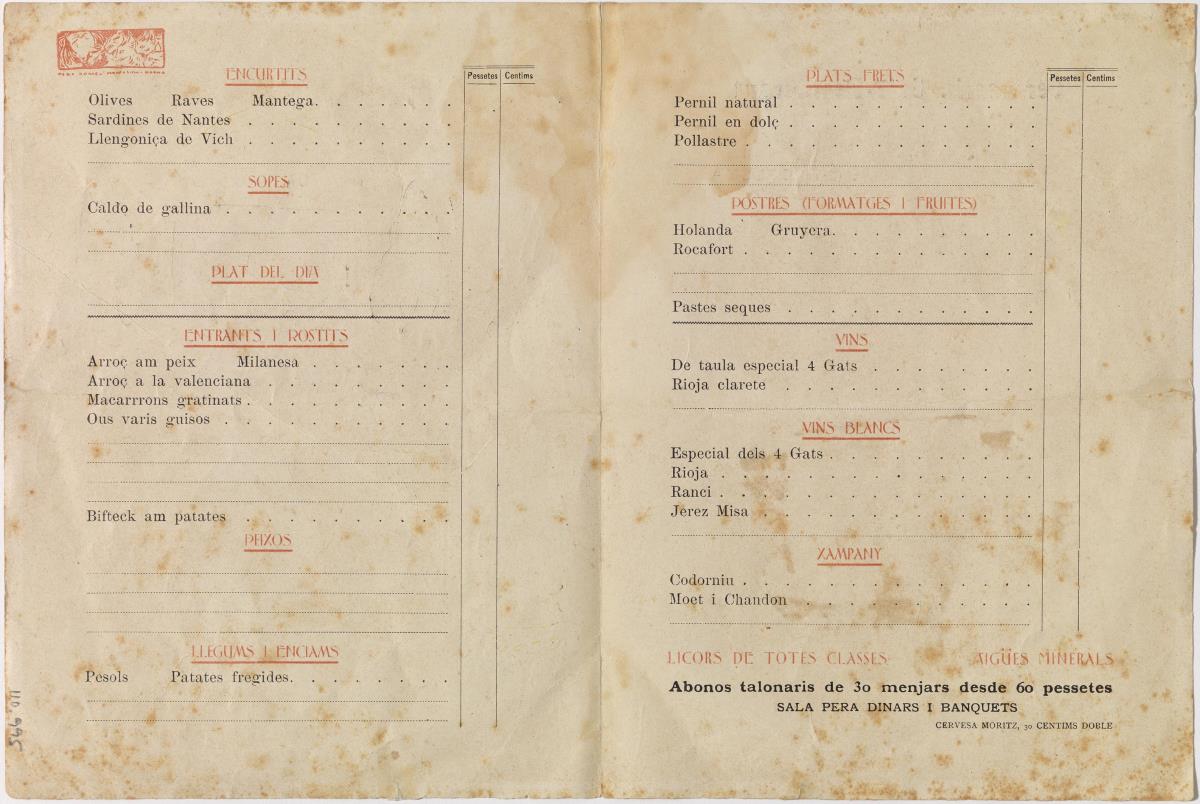 ENCURTITS
Pessetes Centims
Olives Raves Mantega
Sardines de Nantes
Llengoniça de Vich
SOPES
Caldo de gallina
PLAT DEL DIA
ENTRANTS I ROSTITS
Arroç am peix Milanesa
Arroç a la valenciana
Macarrrons gratinats
Ous varis guisos
Bifteck am patates
PEIXOS
LLEGUMS I ENCIAMS
Pesols Patates fregides
PLATS FRETS
Pessetes Centims
Pernil natural
Pernil en dolç
Pollastre
POSTRES (FORMATGES I FRUITES)
Holanda Gruyera
Rocafort
Pastes seques
VINS
De taula especial 4 Gats
Rioja clarete
VINS BLANCS
Especial dels 4 Gats
Rioja
Ranci
Jerez Misa
XAMPANY
Codorniu
Moet i Chandon
LICORS DE TOTES CLASSES AIGÜES MINERALS
Abonos talonaris de 30 menjars desde 60 pessetes
SALA PERA DINARS I BANQUETS
CERVESA MORITZ, 30 CENTIMS DOBLE